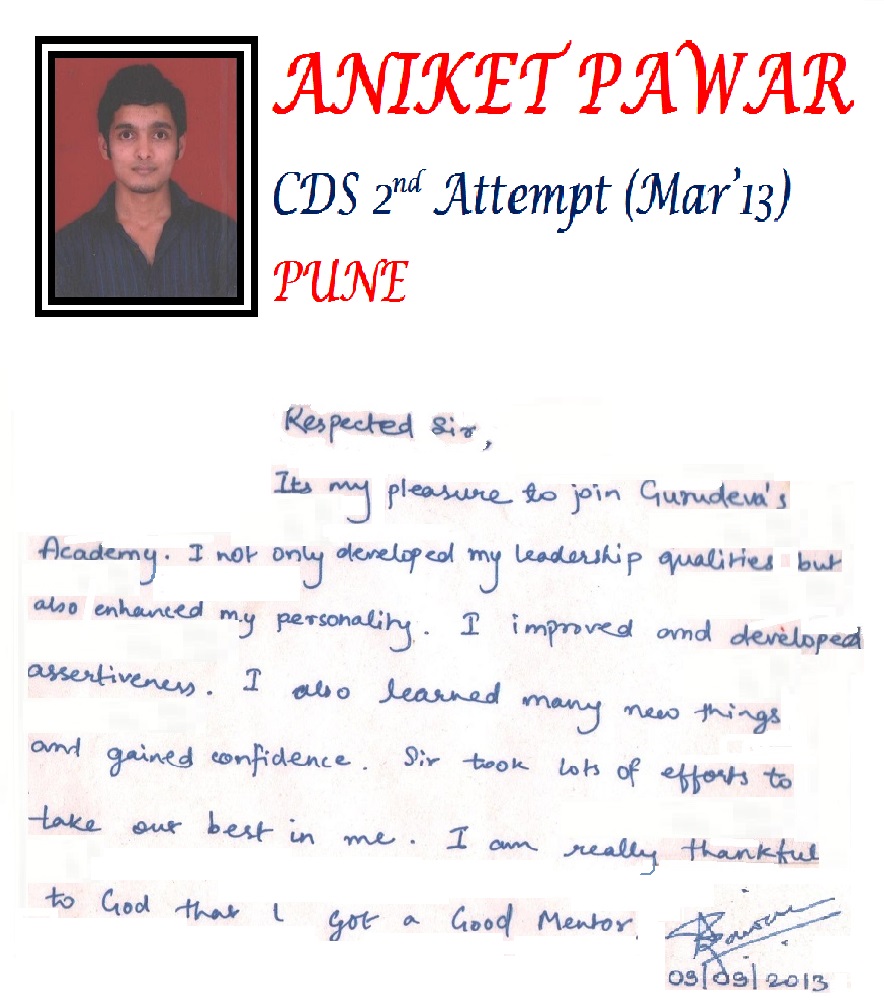 ANIKET PAWAR
CDS 2nd Attempt (Mar'13)
PUNE
Respected Sir,
Its my pleasure to join Gurudeva's
Academy. I not only developed my leadership qualities but
also enhanced my personality. I improved and developed
assertiveness. I also learned many new things
and gained confidence. Sir took lots of efforts to
take out best in me. I am really thankful
to God that I got a Good Mentor.
09/09/2013